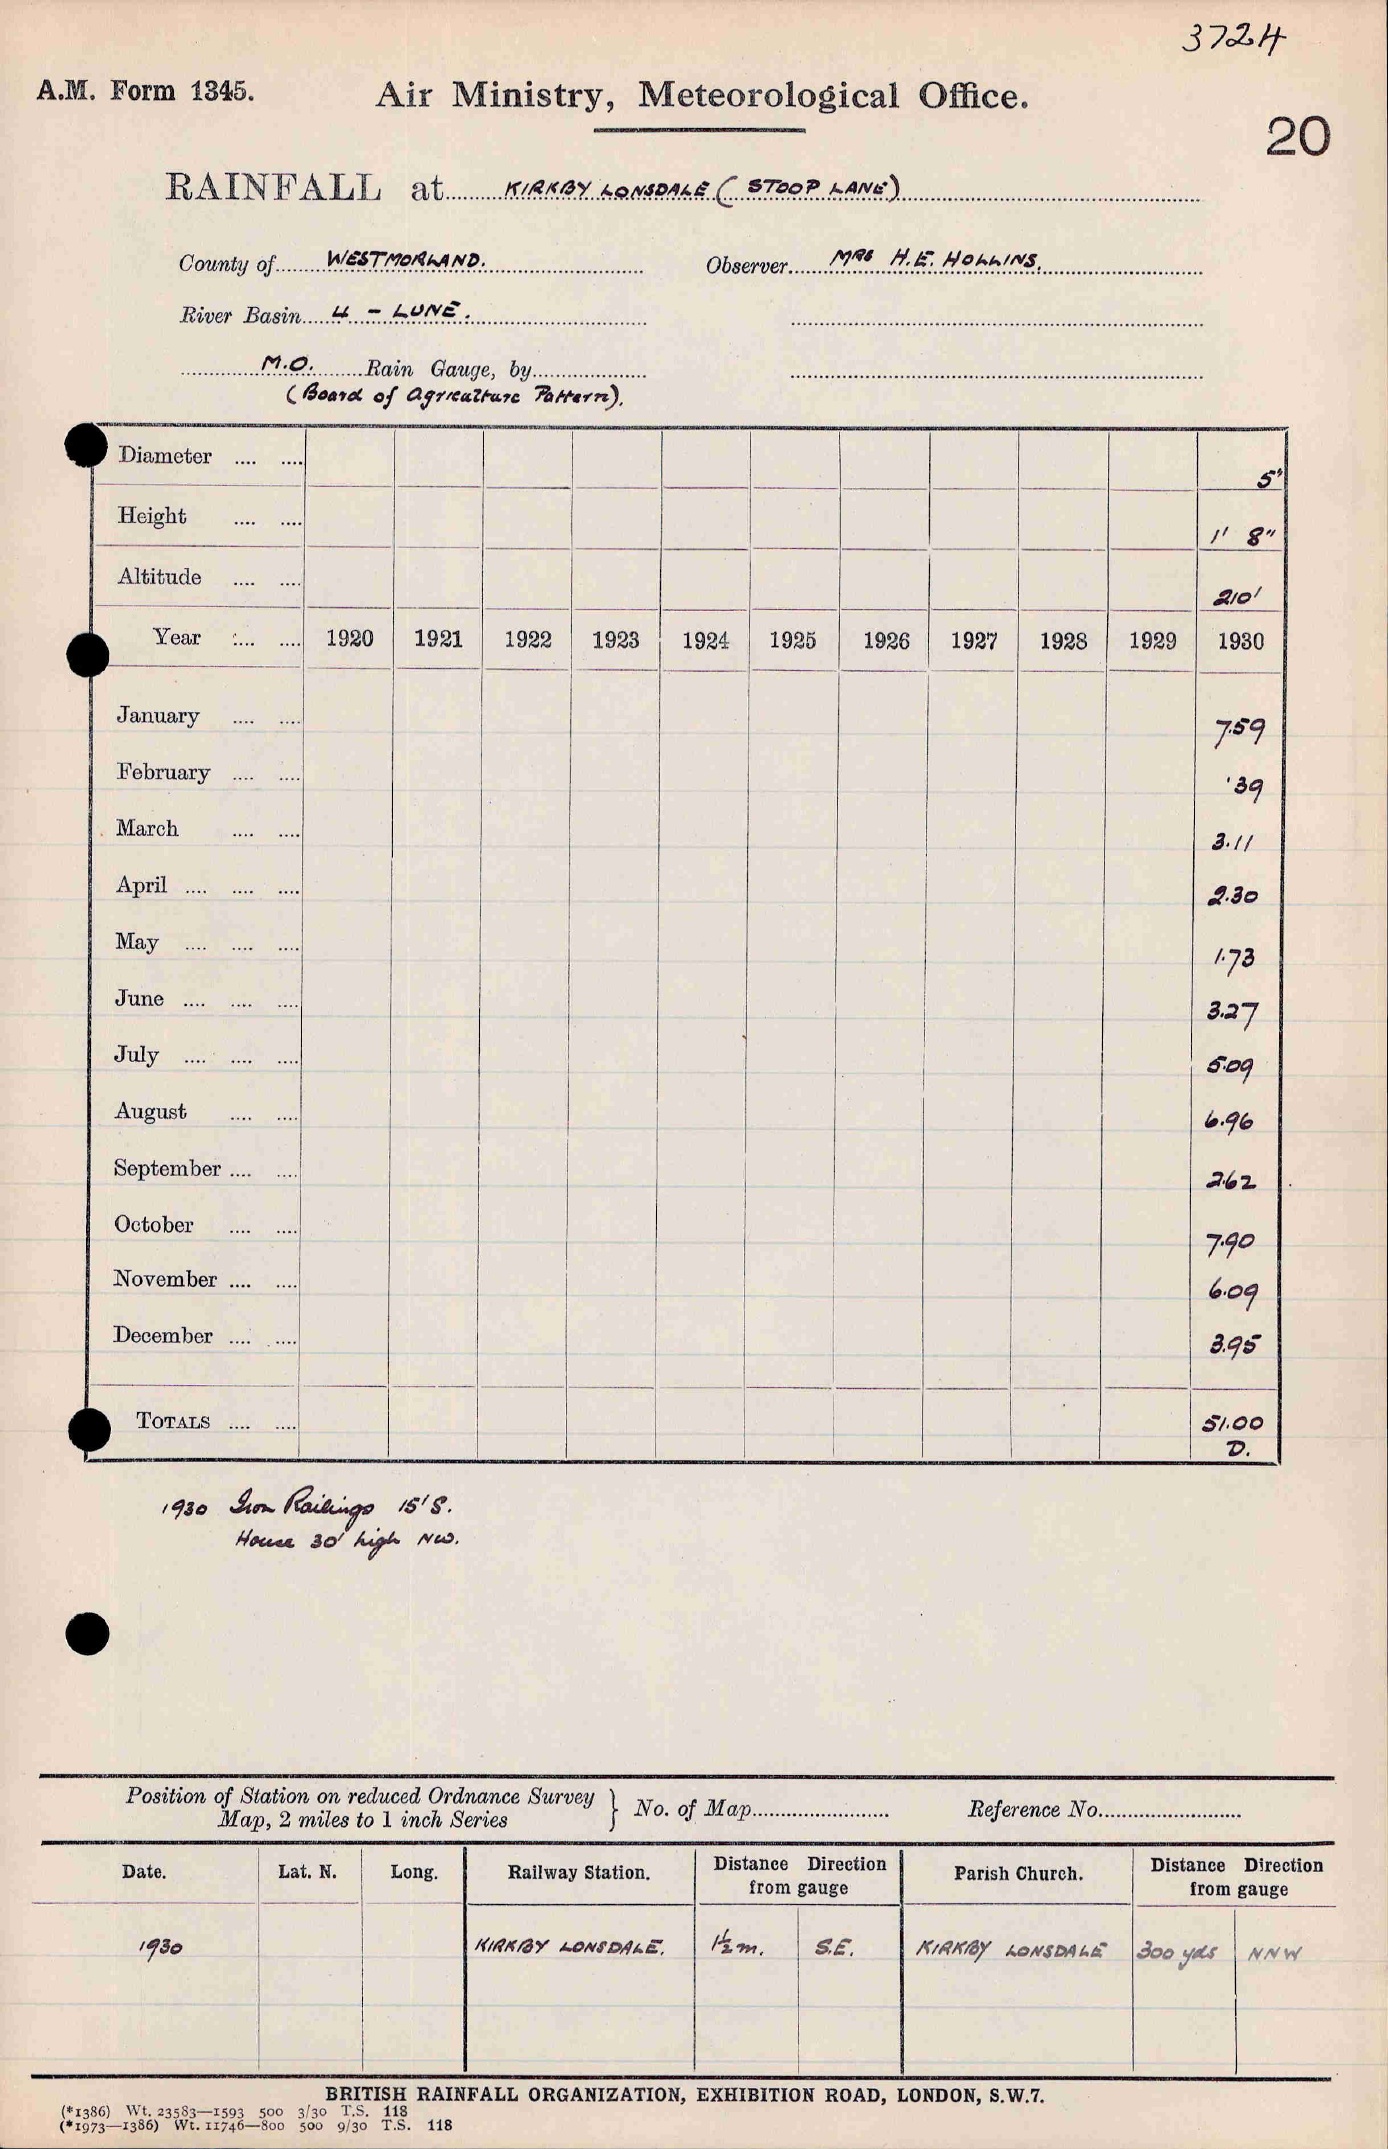 3724
A.M. Form 1345. Air Ministry, Meteorological Office.
20
RAINFALL at KIRKBY LONSDALE (STOOP LANE)
County of WESTMORLAND. Observer MRS H.E. HOLLINS.
River Basin 4 – LUNE.
M.O. Rain Gauge, by
(Board of Agriculture Pattern).
Diameter .... .... 5"
Height .... .... 1' 8"
Altitude .... .... 210'
Year .... .... 1920 1921 1922 1923 1924 1925 1926 1927 1928 1929 1930
January .... .... 7.59
February .... .... .39
March .... .... 3.11
April .... .... .... 2.30
May .... .... .... 1.73
June .... .... .... 3.27
July .... .... .... 5.09
August .... .... 6.96
September .... .... 2.62
October .... .... 7.90
November .... .... 6.09
December .... .... 3.95
TOTALS .... .... 51.00
D.
1930 Iron Railings 15' S.
House 30' high NW.
Position of Station on reduced Ordnance Survey
Map, 2 miles to 1 inch Series } No. of Map Reference No.
Date. Lat. N. Long. Railway Station. Distance Direction from gauge Parish Church. Distance Direction from gauge
1930 KIRKBY LONSDALE. 1½ m. S.E. KIRKBY LONSDALE 300 yds NNW
BRITISH RAINFALL ORGANIZATION, EXHIBITION ROAD, LONDON, S.W.7.
(*1386) Wt. 23583—1593 500 3/30 T.S. 118
(*1973—1386) Wt. 11746—800 500 9/30 T.S. 118